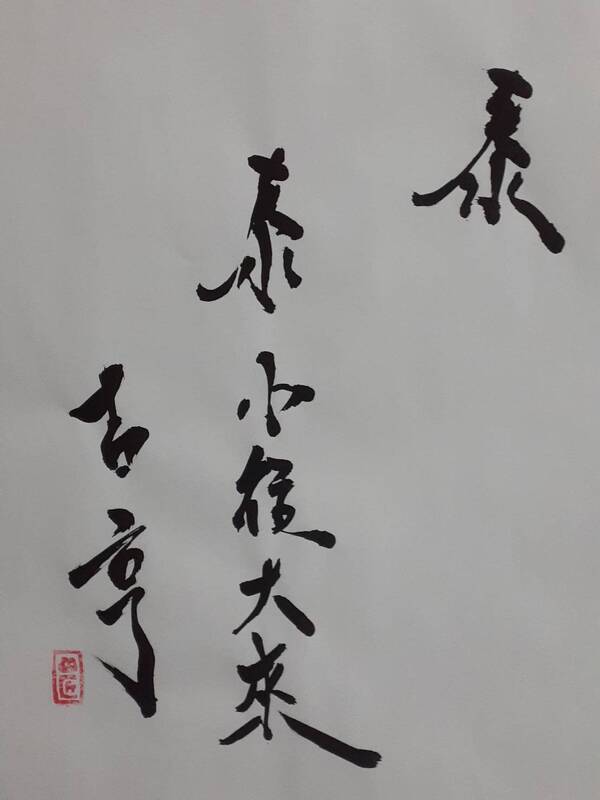 泰
泰小往大來
吉亨